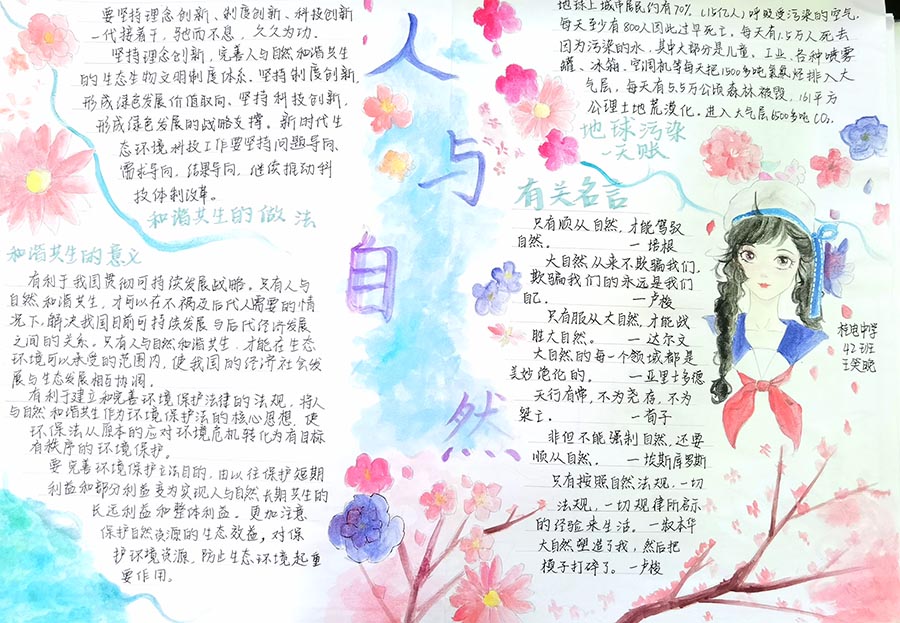 要坚持理念创新、制度创新、科技创新
一代接着干，驰而不息，久久为功.
坚持理念创新，完善人与自然和谐共生
的生态生物文明制度体系.坚持制度创新，
形成绿色发展价值取向、坚持科技创新，
形成绿色发展的战略支撑。新时代生
态环境科技工作要坚持问题导向、
需求导向，结果导向，继续推动科
技体制改革。
和谐共生的做法
和谐共生的意义
有利于我国贯彻可持续发展战略。只有人与
自然和谐共生，才可以在不祸及后代人需要的情
况下，解决我国目前可持续发展与后代经济发展
之间的关系。只有人与自然和谐共生，才能在生态
环境可以承受的范围内，使我国的经济社会发
展与生态发展相互协调。
有利于建立和完善环境保护法律的法规，将人
与自然和谐共生作为环境保护法的核心思想，使
环保法从原本的应对环境危机转化为有目标
有秩序的环境保护。
要完善环境保护立法目的，由以往保护短期
利益和部分利益变为实现人与自然长期共生的
长远利益和整体利益。更加注意
保护自然资源的生态效益，对保
护环境资源，防止生态环境起重
要作用。
人
与
自
然
地球上城市居民约有70%（15亿人）呼吸受污染的空气，
每天至少有800人因此过早死亡，每天有1.5万人死去
因为污染的水，其中大部分是儿童、工业、各种喷雾
罐、冰箱、空调机等每天把1500多吨氯氟烃排入大
气层，每天有5.5万公顷森林被毁，161平方
公理土地荒漠化.进入大气层1500多吨CO₂
地球污染
一天账
有关名言
只有顺从自然，才能驾驭
自然。 一培根
大自然从来不欺骗我们，
欺骗我们的永远是我们
自己. 一卢梭
只有服从大自然，才能战
胜大自然。 一达尔文
大自然的每一个领域都是
美妙绝伦的。 一亚里士多德
天行有常，不为尧存，不为
桀亡. 一荀子
非但不能强制自然，还要
顺从自然. 一埃斯库罗斯
只有按照自然法规，一切
法规，一切规律所启示
的经验来生活。一叔本华
大自然塑造了我，然后把
模子打碎了。一卢梭
中学
42班